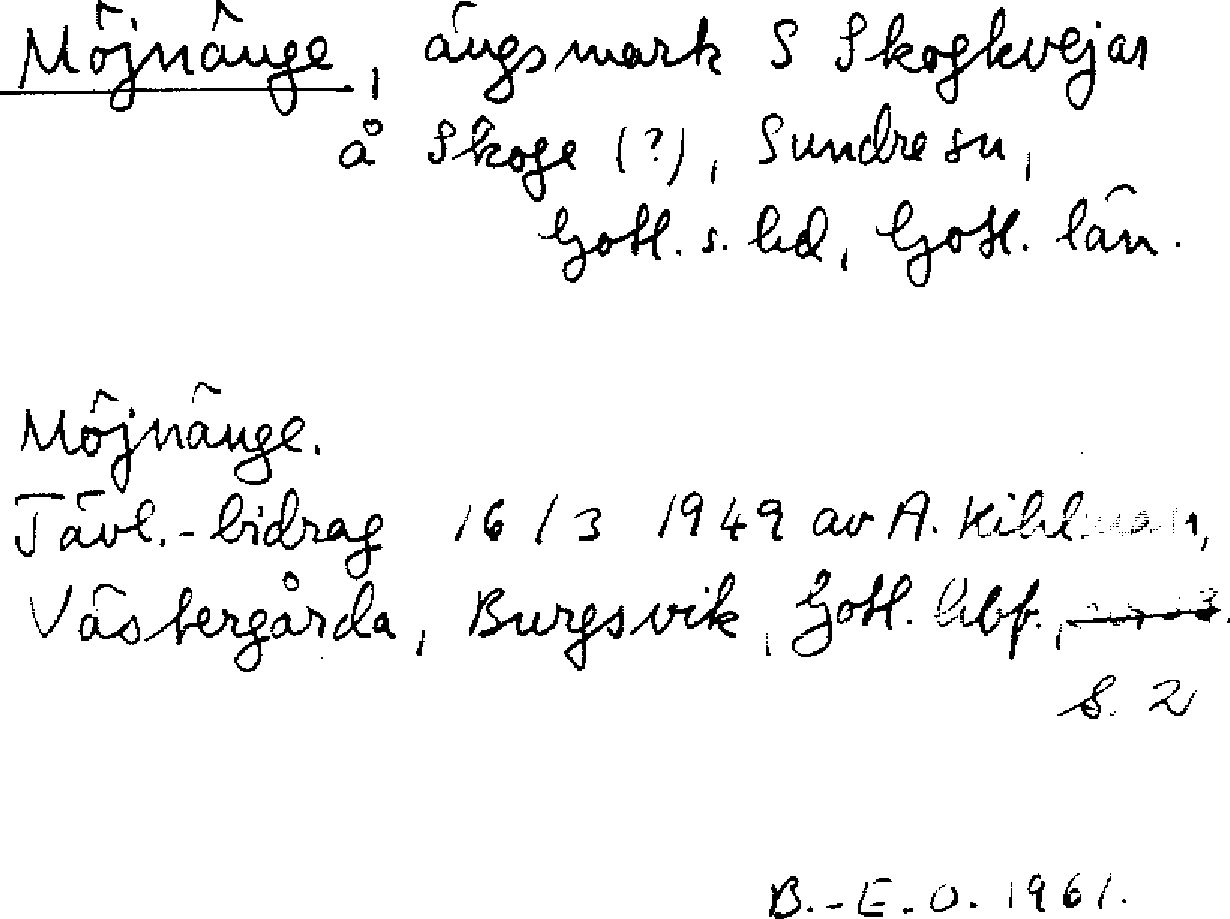 Möjnänge, ängsmark S Skogkvejar
å Skoge (?), Sundre sn,
Gotl. s. hd, Gotl. län.
Möjnänge.
Tävl.-bidrag 16/3 1949 av A. Kihlman,
Västergårda, Burgsvik, Gotl. hbf.,
S. 2
B.-E.O. 1961.